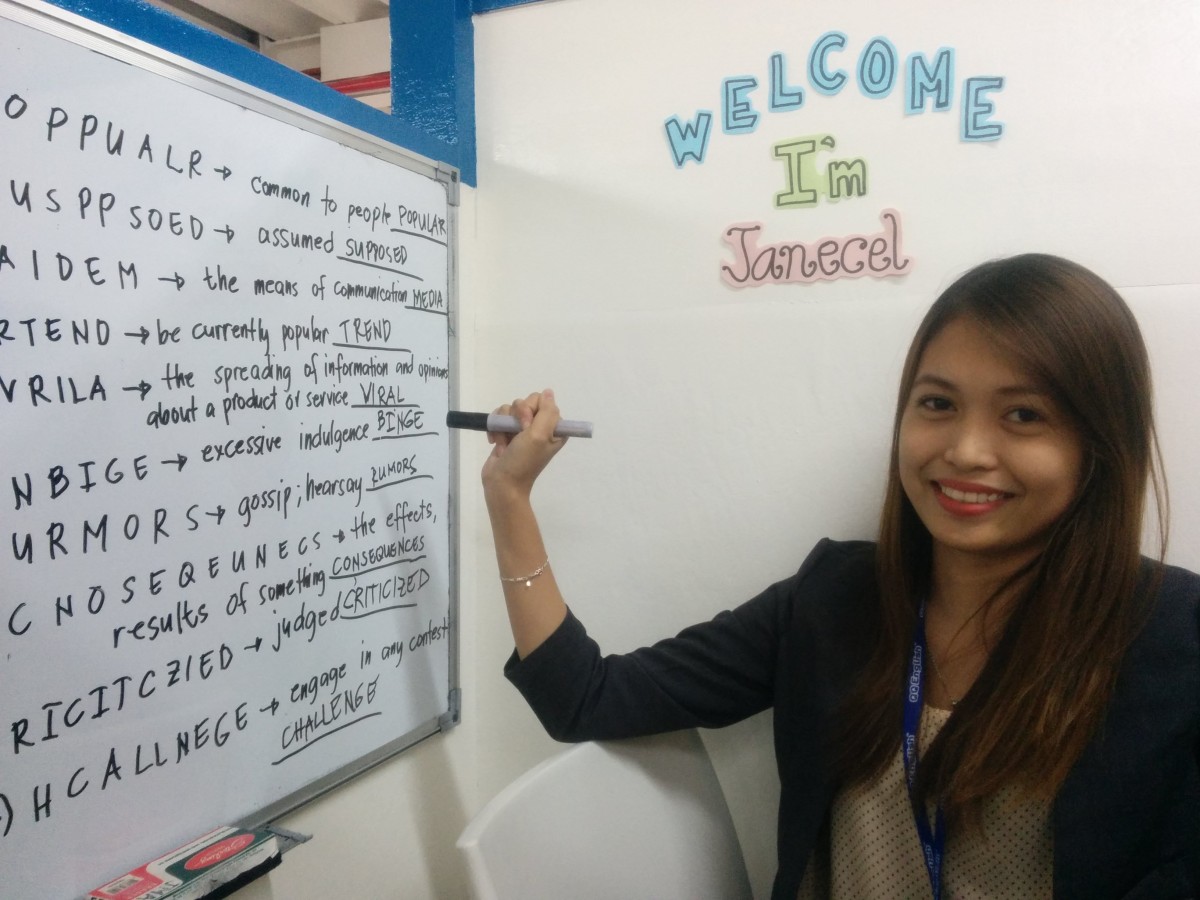 OPPUALR → common to people POPULAR
USPPSOED → assumed SUPPOSED
AIDEM → the means of communication MEDIA
RTEND → be currently popular TREND
VRILA → the spreading of information and opinions
about a product or service VIRAL
NBIGE → excessive indulgence BINGE
URMORS → gossip; hearsay RUMORS
CNOSEQEUNECS → the effects,
results of something CONSEQUENCES
RICITCZIED → judged CRITICIZED
) HCALLNEGE → engage in any contest
CHALLENGE
WELCOME
I'm
Janecel
QQEnglish